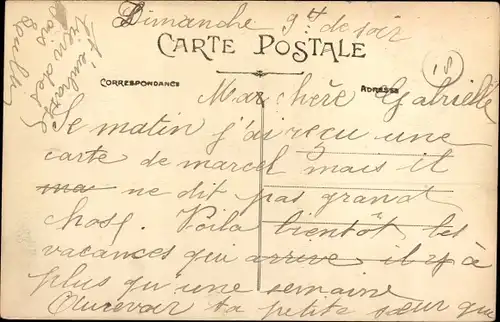 Dimanche 9 de soir
CARTE POSTALE
CORRESPONDANCE
ADRESSE
18
Ma chère Gabrielle
Se matin j'ai reçu une
carte de marcel mais il
ma ne dit pas grand
chose. Voila bientôt les
vacances qui arrive il y à
plus qu'une semaine
Aurevoir ta petite sœur qui
t'embrasse
bien des
fois